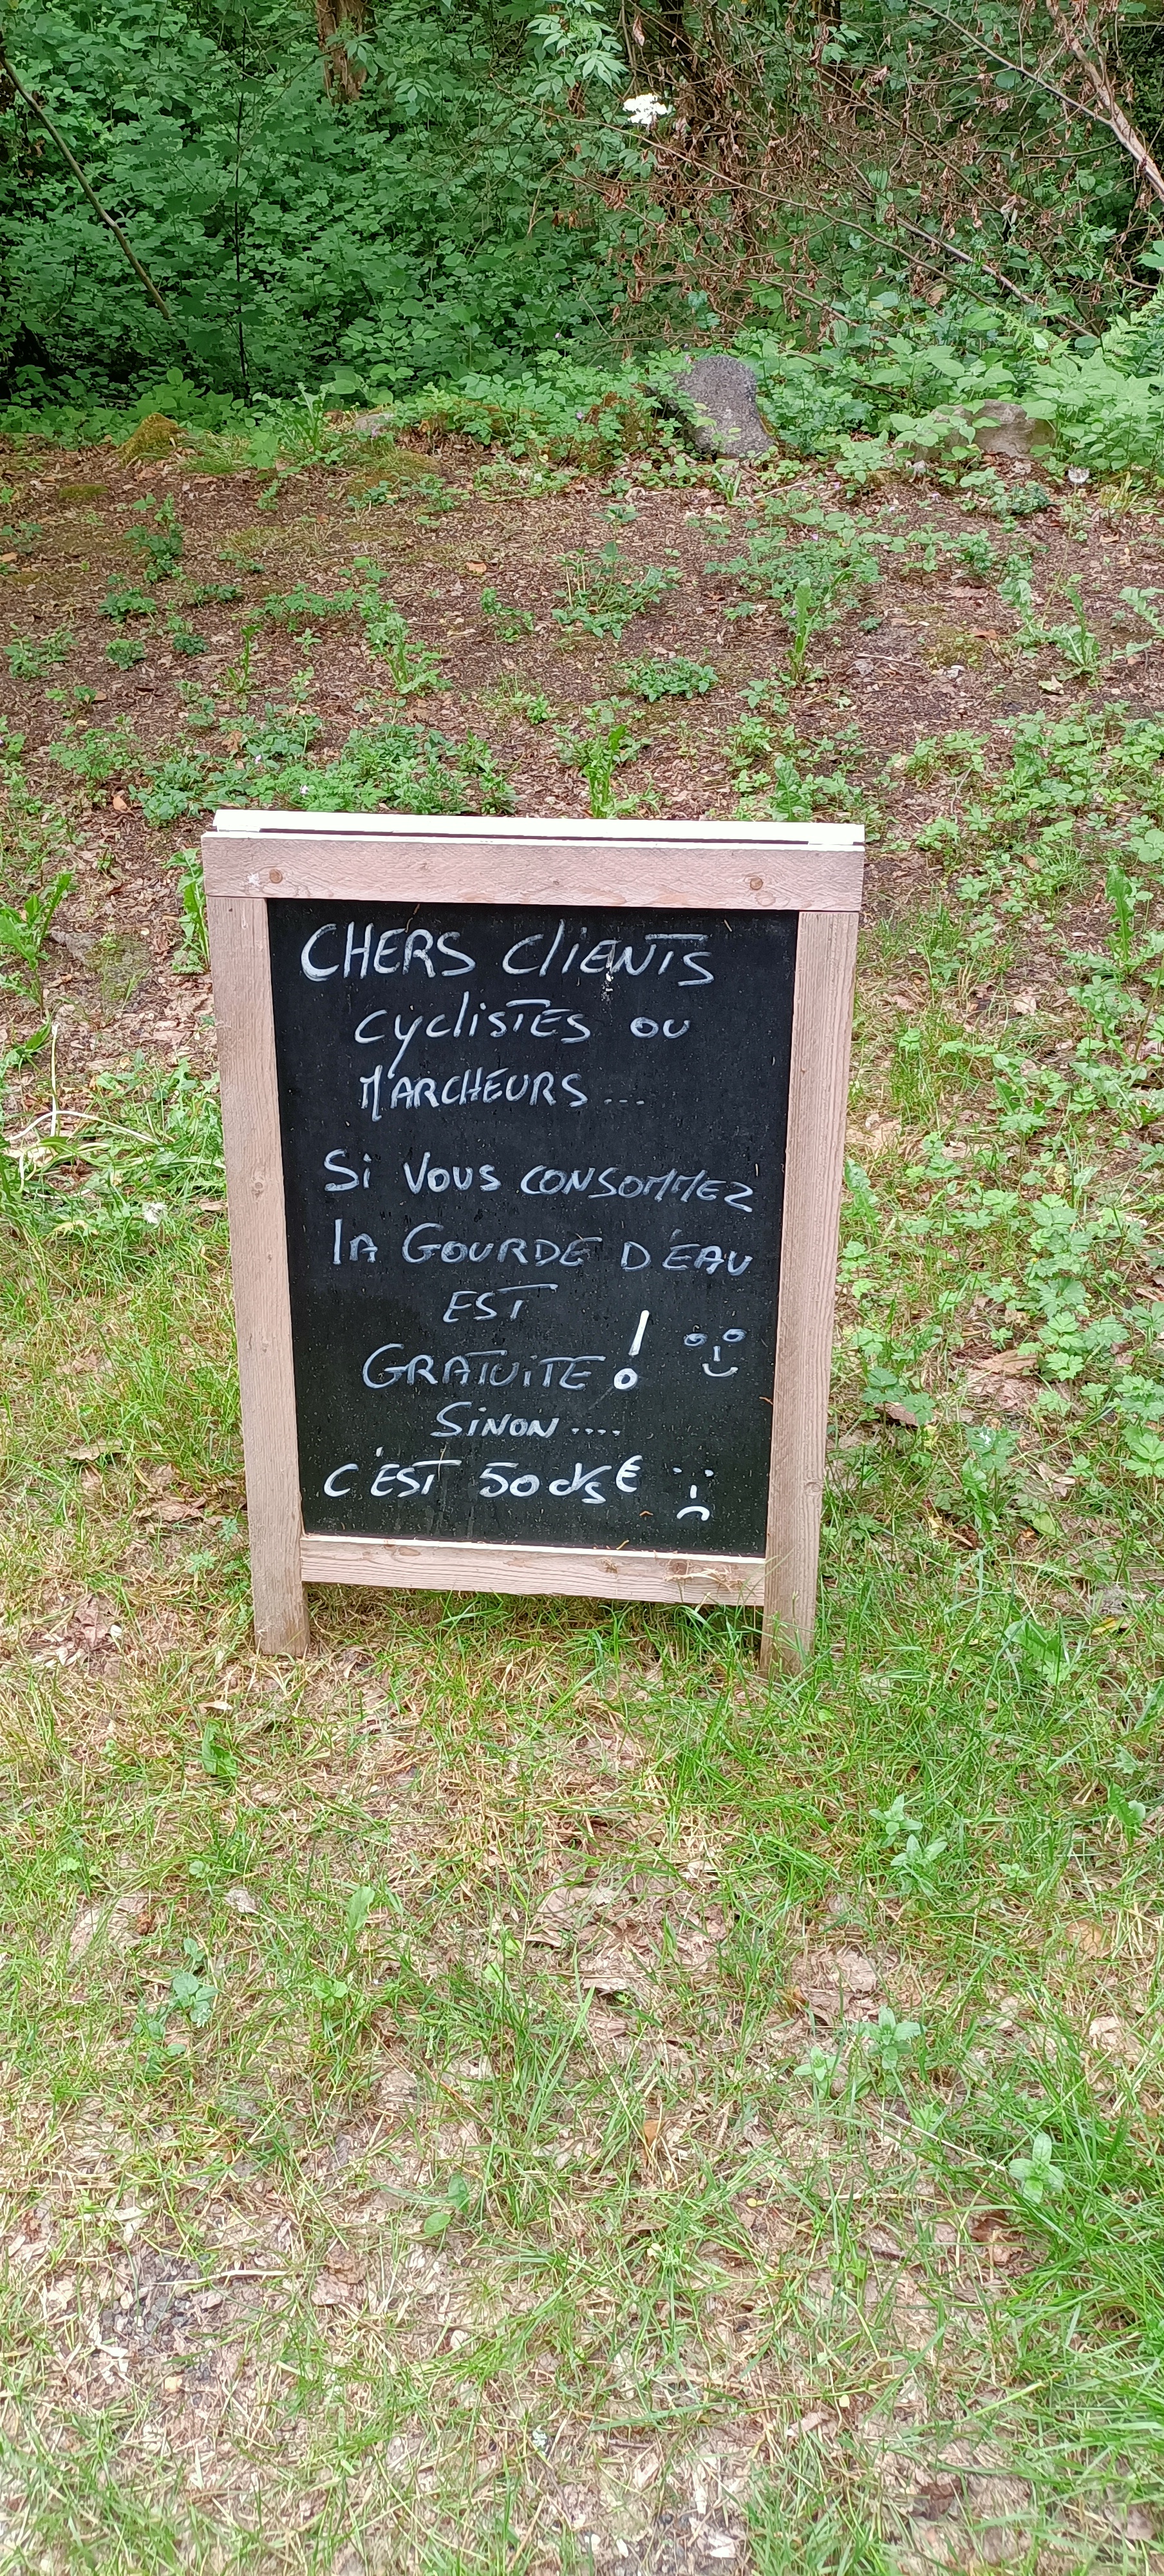 CHERS clIENTS
cyclisTES ou
MARCHEURS...
Si Vous CONSOMMEZ
lA GOURDE D'EAU
EST
GRATUITE !
SINON....
C'EST 50 cts €